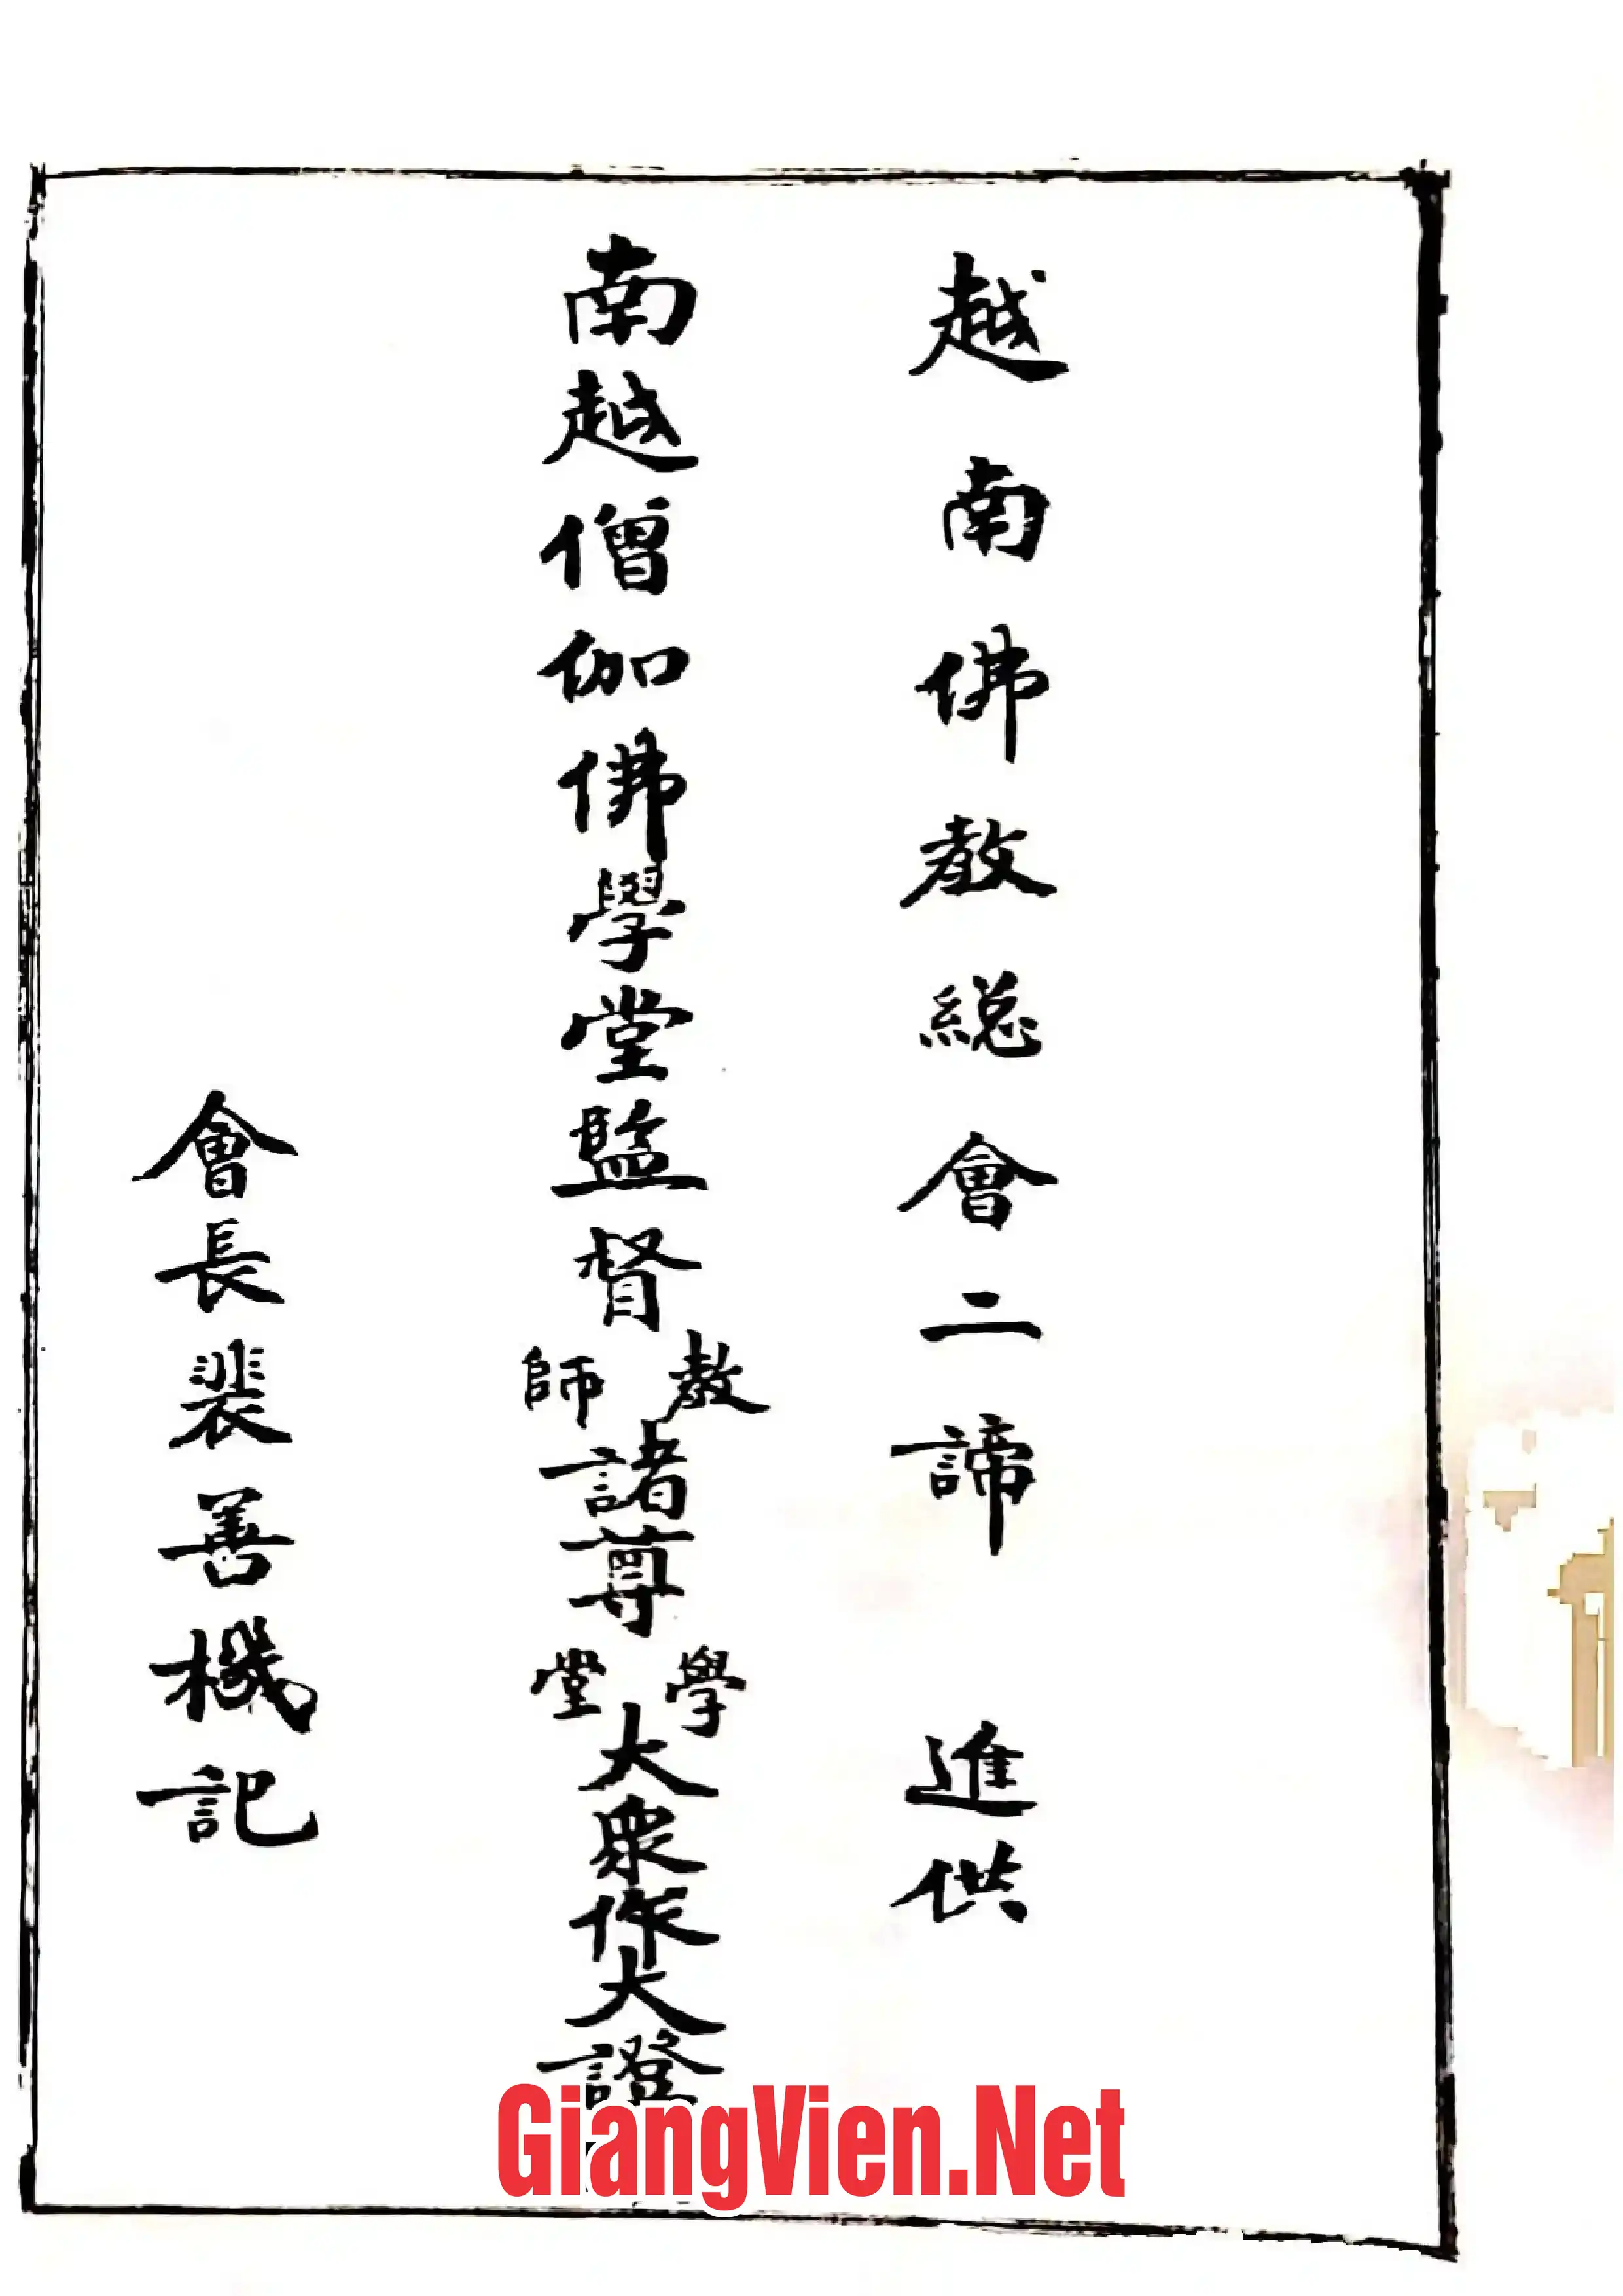 越南佛教総會二諦 進供
南越僧伽佛學堂監督教師諸尊學堂大眾作大證
會長裴善機記
GiangVien.Net